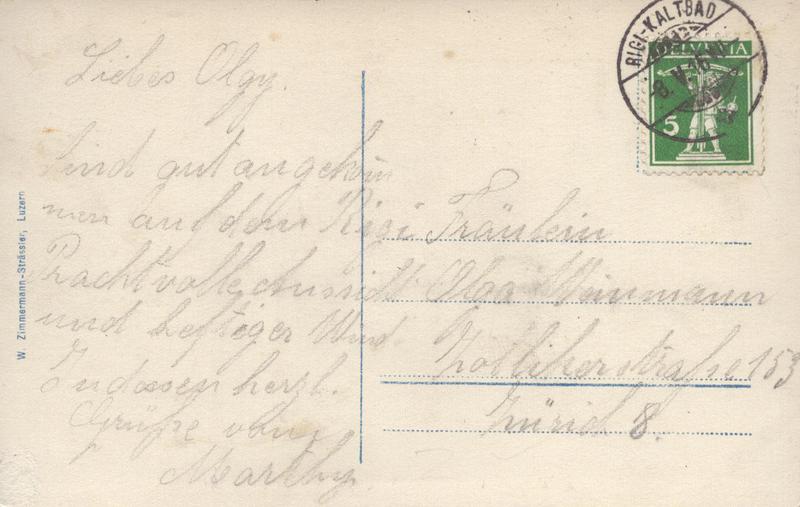 Liebes Olgy.
Sind gut angekom
men auf dem Rigi
Prachtvolle Aussicht
und heftiger Wind.
Indessen herzl.
Grüße von
Marthy.
Fräulein
Olga Weinmann
Zollikerstraße 153
Zürich 8.
RIGI-KALTBAD
HELVETIA
5
W. Zimmermann-Strässler, Luzern